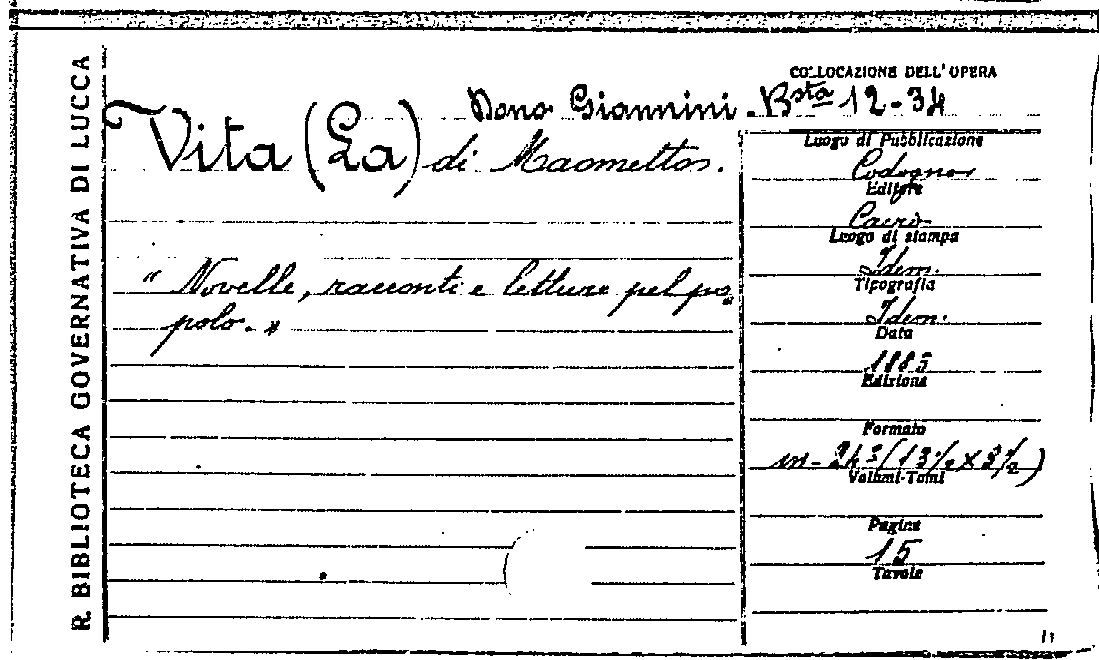 R. BIBLIOTECA GOVERNATIVA DI LUCCA
COLLOCAZIONE DELL'OPERA
Dono Giannini - Bsta 12-34
Vita (La) di Maometto.
« Novelle, racconti e letture pel po
polo. »
Luogo di Pubblicazione
Codogno
Editore
Cairo
Luogo di stampa
Idem.
Tipografia
Idem.
Data
1885
Edizione
Formato
in-24º (13½ x 8½)
Volumi-Tomi
Pagine
15
Tavole